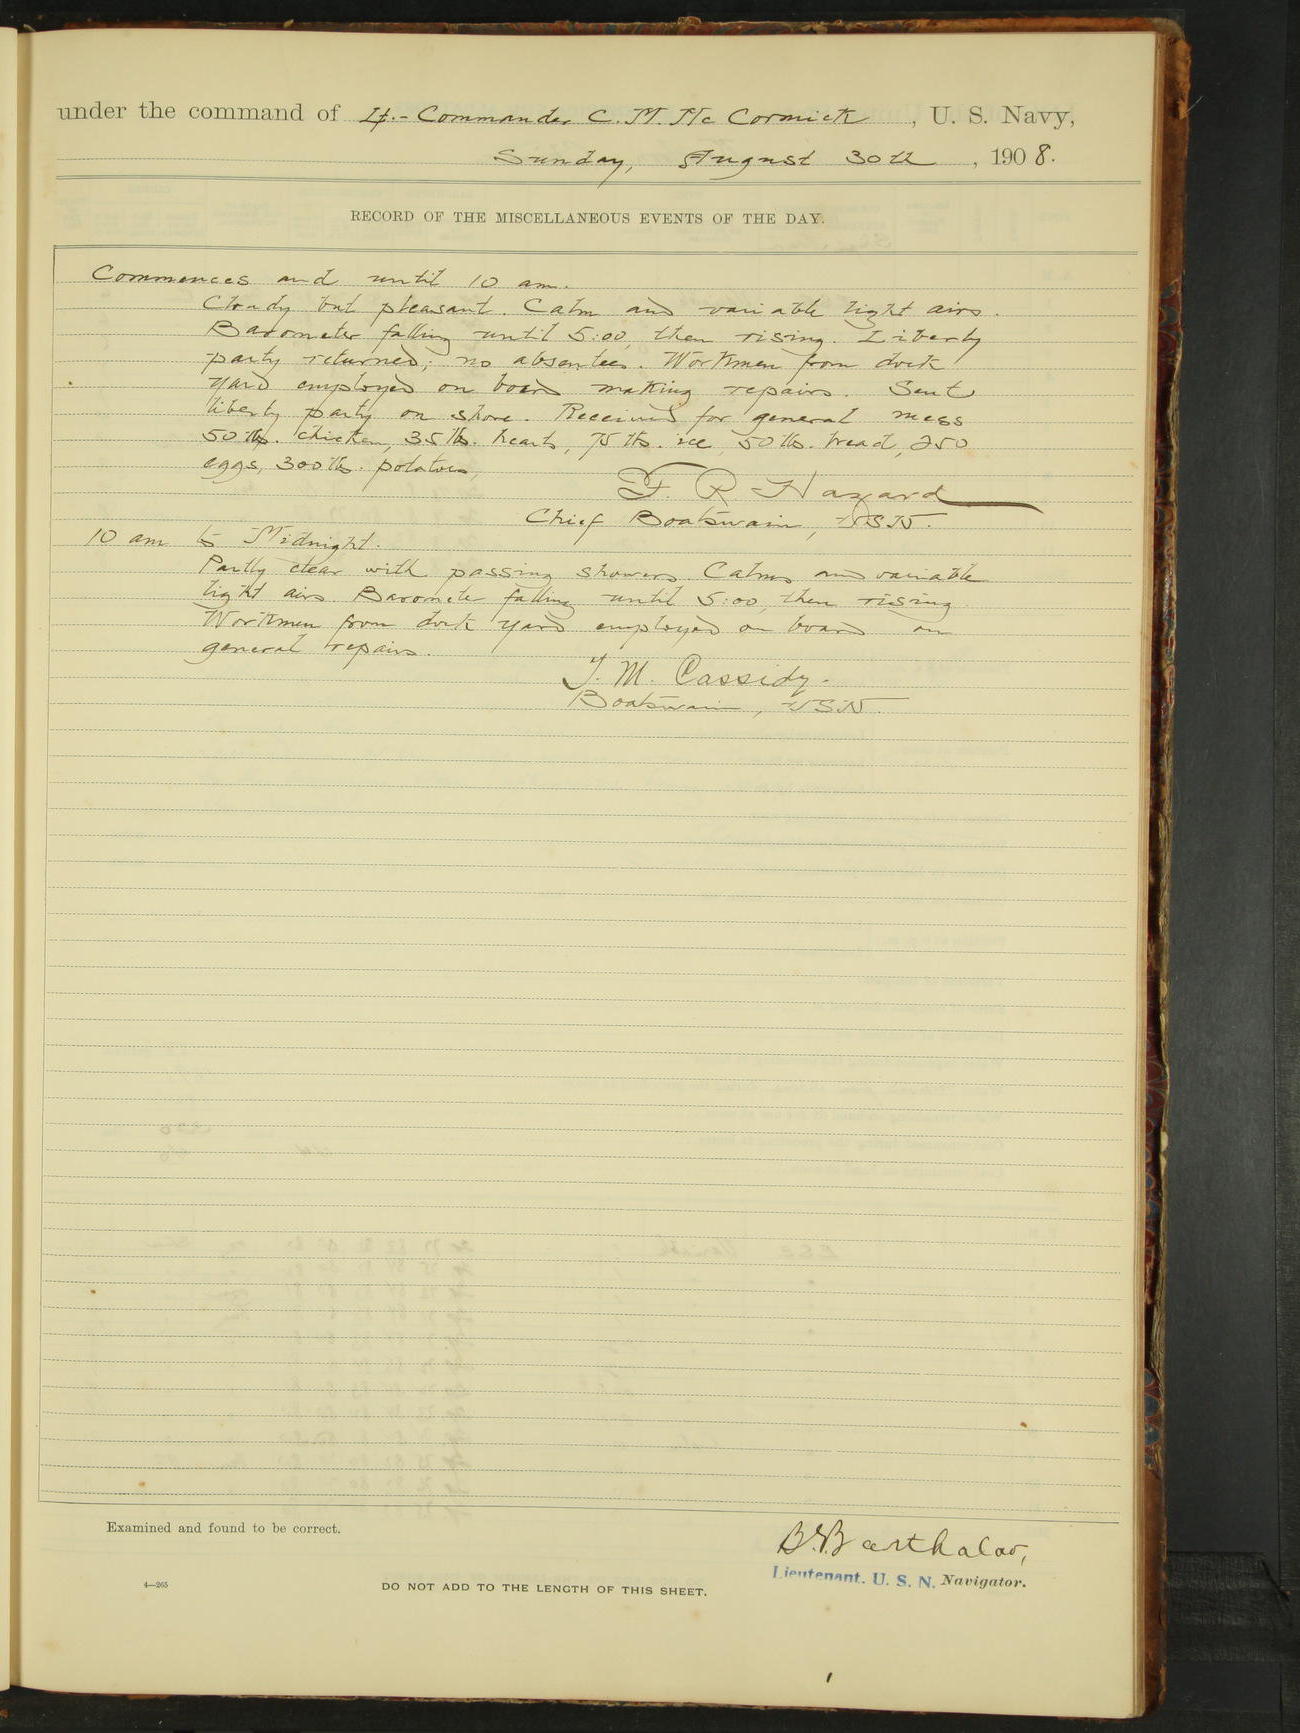 under the command of Lt.- Commander C. M. Mc Cormick , U. S. Navy,
Sunday, August 30th , 1908.
RECORD OF THE MISCELLANEOUS EVENTS OF THE DAY.
Commences and until 10 am.
Cloudy but pleasant. Calm and variable light airs.
Barometer falling until 5:00, then rising. Liberty
party returned; no absentees. Workmen from dock
yard employed on board making repairs. Sent
liberty party on shore. Received for general mess
50 lbs. chicken, 35 lbs. hearts, 75 lbs. ice, 50 lbs. bread, 250
eggs, 300 lbs. potatoes,
F. R. Hazard
Chief Boatswain, USN.
10 am to Midnight.
Partly clear with passing showers. Calms and variable
light airs Barometer falling until 5:00, then rising
Workmen from dock yard employed on board on
general repairs.
T. M. Cassidy.
Boatswain, USN.
Examined and found to be correct.
Lieutenant. U. S. N. Navigator.
4—265
DO NOT ADD TO THE LENGTH OF THIS SHEET.